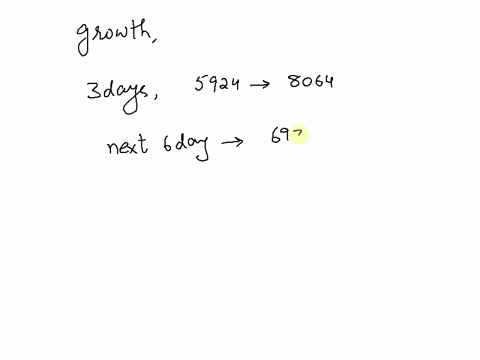 growth,
3 days, 5924 → 8064
next 6 day → 697